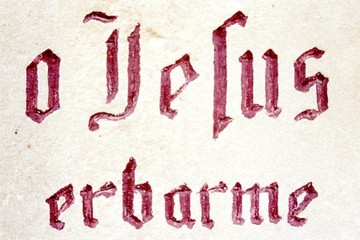 o Jeſus
erbarme